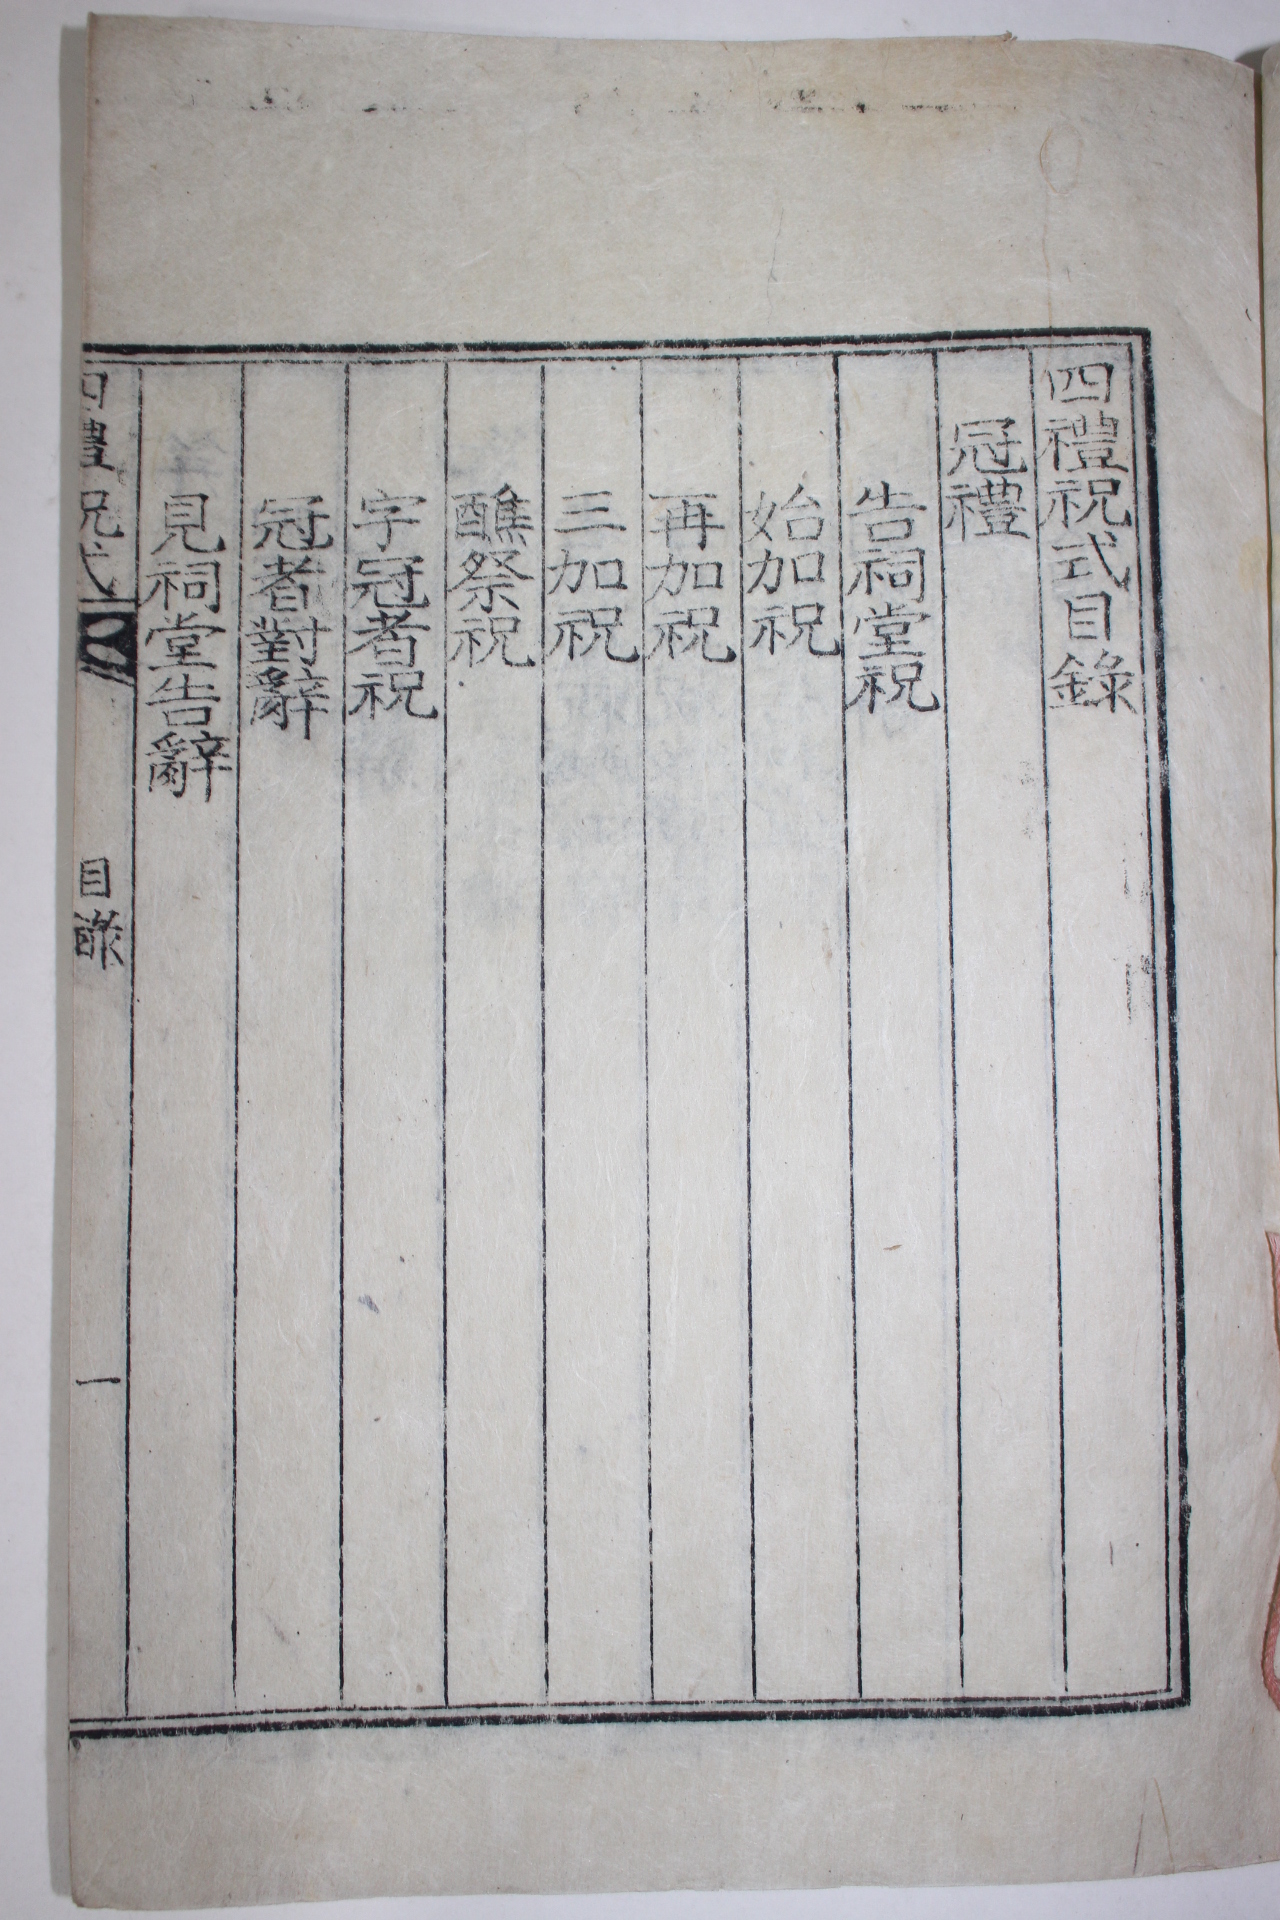 四禮祝式目錄
冠禮
告祠堂祝
始加祝
再加祝
三加祝
醮祭祝
字冠者祝
冠者對辭
見祠堂告辭
四禮祝式
目錄
一